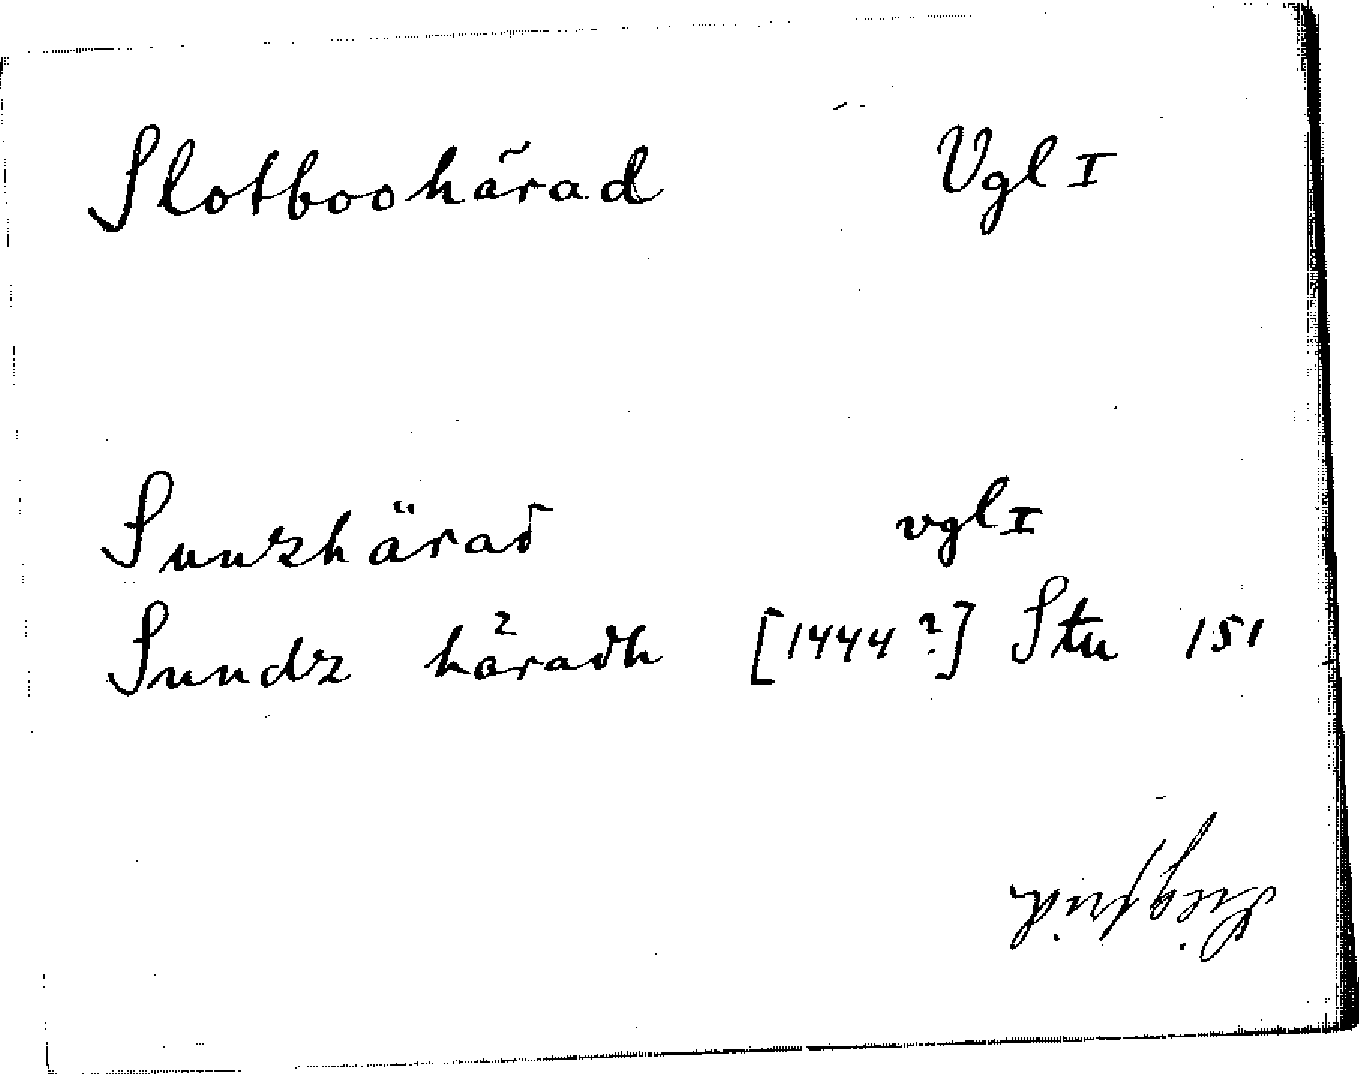 Slotboohärad Vgl I
Sunzhärað vgl I
Sundz häradh [1444?] Stu 151